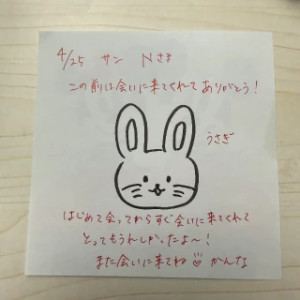 4/25 サン Nさま
この前は会いに来てくれて ありがとう!
うさぎ
はじめて会ってからすぐ会いに来てくれて
とってもうれしかったよ〜!
また会いに来てね♡ かんな